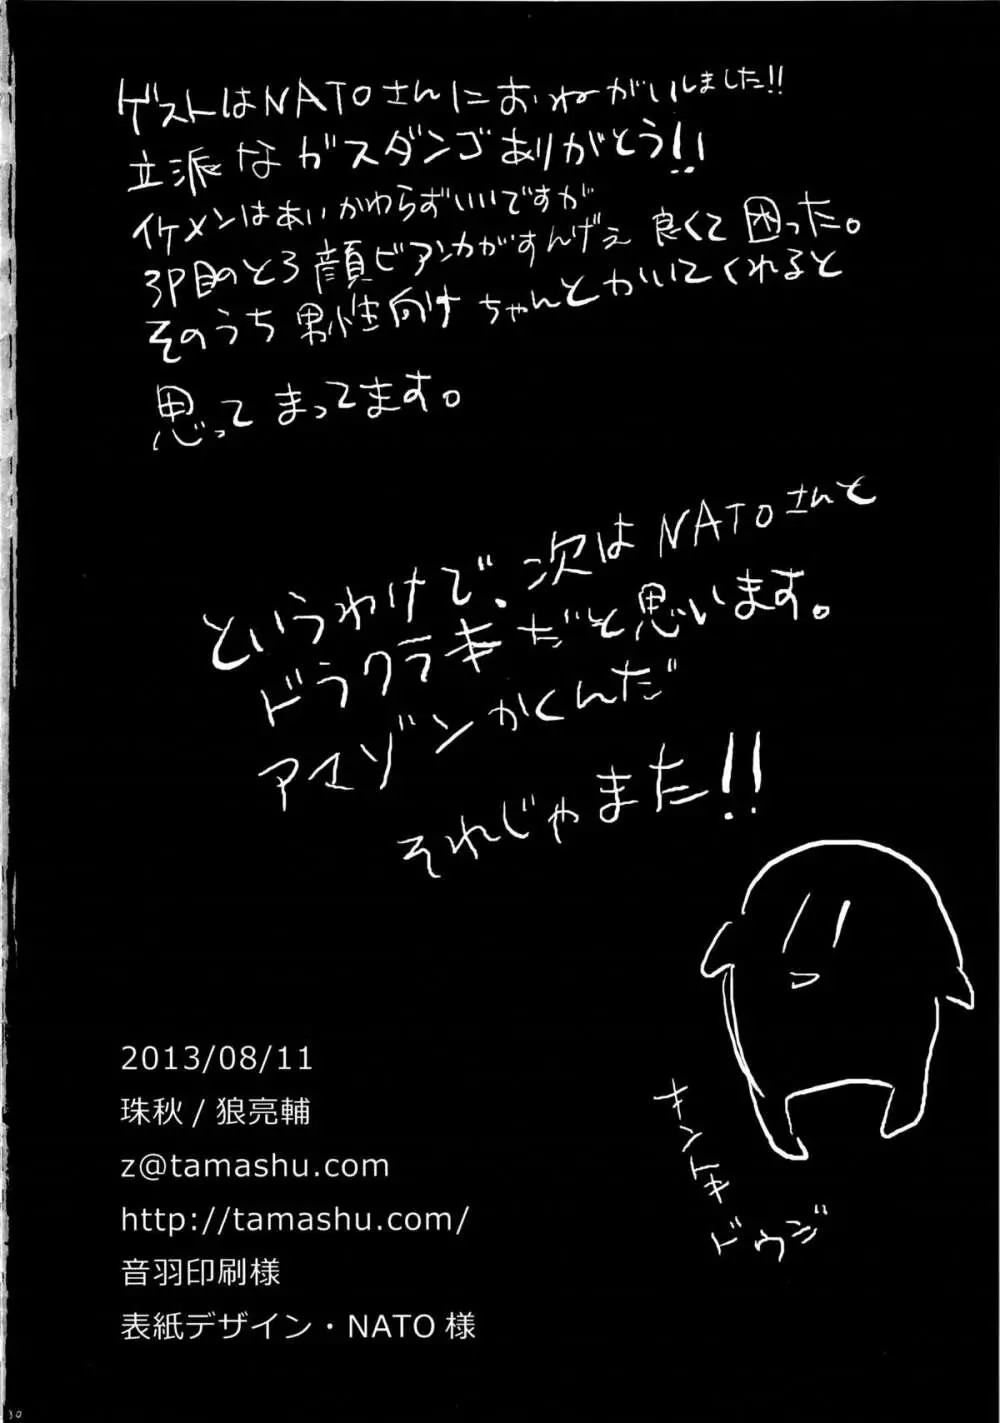 ゲストはNATOさんにおねがいしました!!
立派なガスダンゴありがとう!!
イケメンはあいかわらずいいですが
3P目のとろ顔ビアンカがすんげぇ良くて困った。
そのうち男性向けちゃんとかいてくれると
思ってまってます。
というわけで、次はNATOさんと
ドラクラ本だと思います。
アマゾンかくんだ
それじゃまた!!
ドウジ
2013/08/11
珠秋 / 狼亮輔
z@tamashu.com
http://tamashu.com/
音羽印刷様
表紙デザイン・NATO 様
30